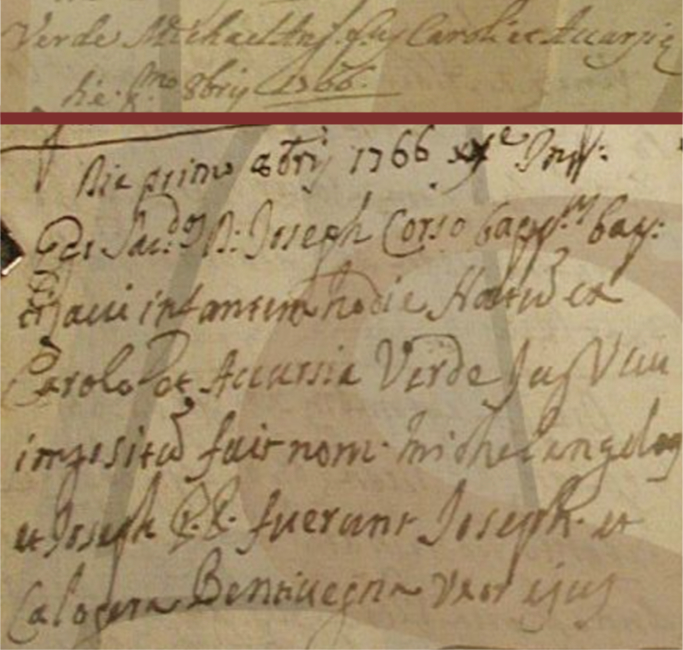 Verde Michael Ang.s filius Caroli et Accursia
die p.mo 8bris 1766.
Die primo 8bris 1766 xve Ind:
Ego Sac: D. Joseph Corso bap:
infantem hodie Natu ex
Carolo et Accursia Verde Jug
impositu fuit nom: michelangelo
et Joseph P.P. fuerunt Joseph et
Calogera Bentivegna uxor ejus